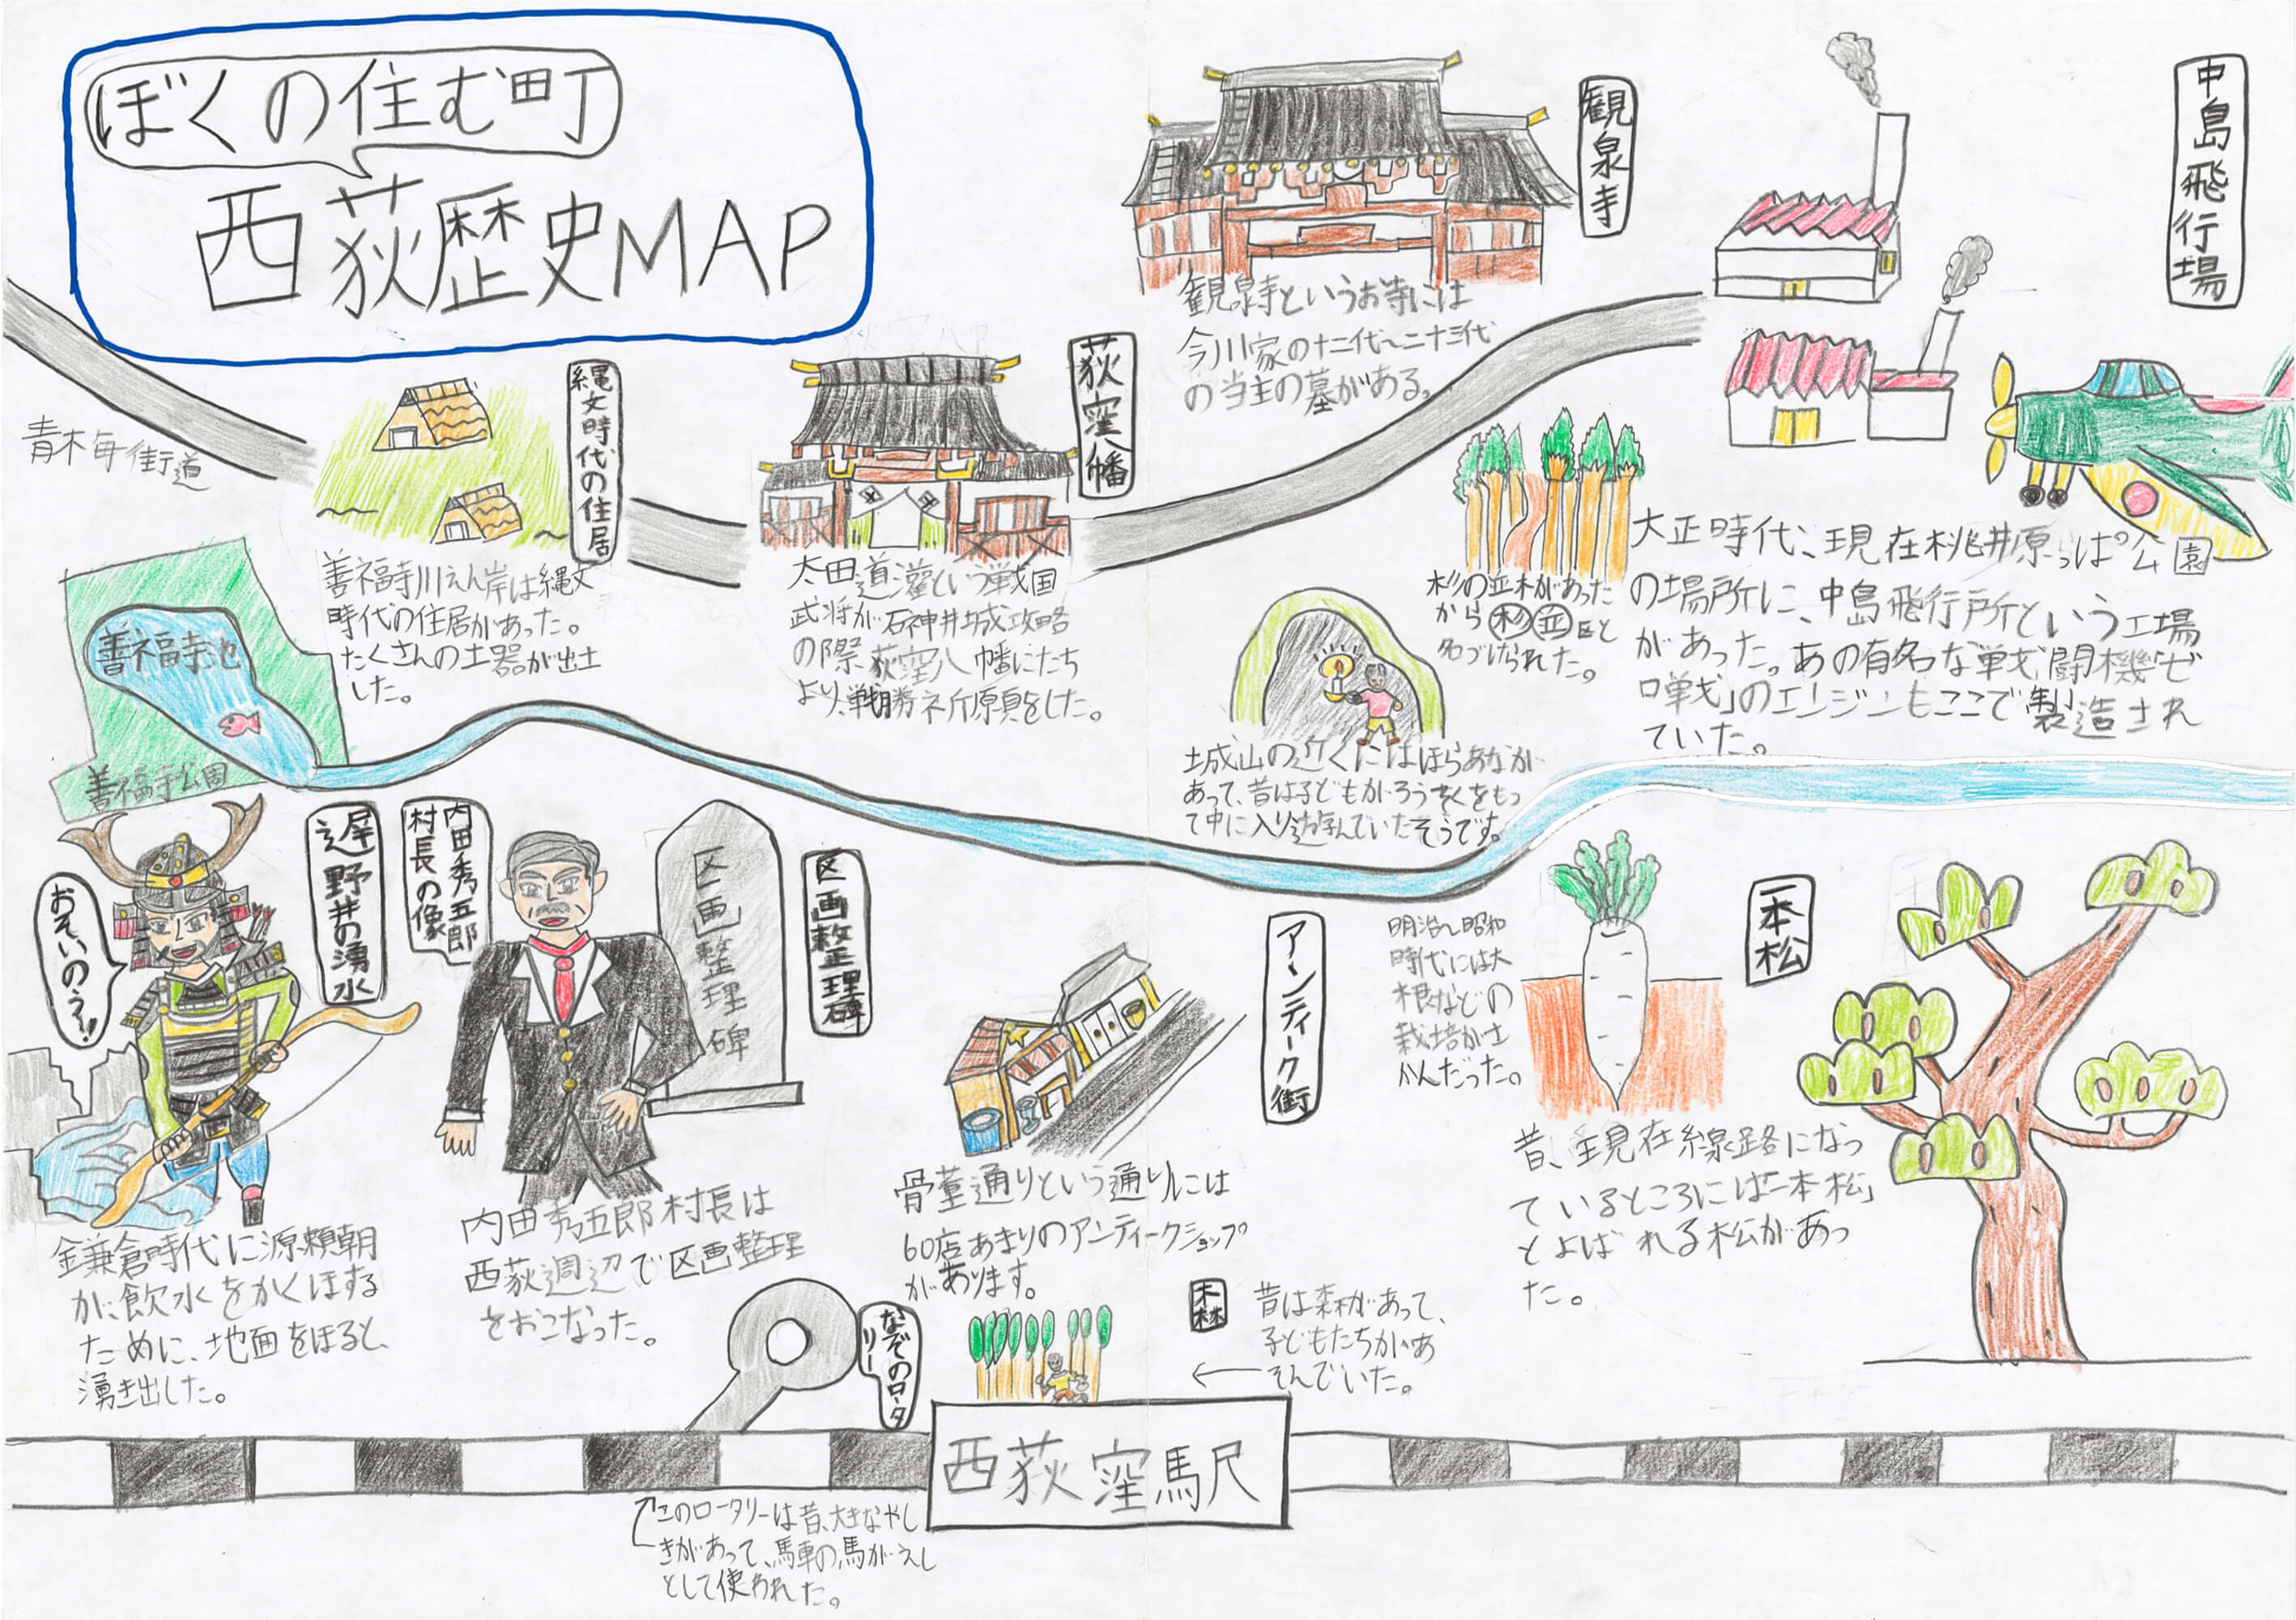 ぼくの住む町
西荻歴史MAP
青木毎街道
縄文時代の住居
善福寺川えん岸は縄文
時代の住居があった。
たくさんの土器が出土
した。
荻窪八幡
太田道灌という戦国
武将が石神井城攻略
の際、荻窪八幡にたち
より、戦勝祈願をした。
観泉寺
観泉寺というお寺には
今川家の十二代〜二十三代
の当主の墓がある。
中島飛行場
大正時代、現在桃井原っぱ公園
の場所に、中島飛行所という工場
があった。あの有名な戦闘機「ゼ
ロ戦」のエンジンもここで製造され
ていた。
杉の並木があった
から杉並区と
名づけられた。
城山の近くにはほらあなが
あって、昔は子どもがろうそくをもっ
て中に入り遊んでいたそうです。
善福寺池
善福寺公園
おそいのう!
遅野井の湧水
鎌倉時代に源頼朝
が、飲水をかくほする
ために、地面をほると、
湧き出した。
内田秀五郎
村長の像
区画整理碑
区画整理碑
内田秀五郎村長は
西荻週辺で区画整理
をおこなった。
アンティーク街
骨董通りという通りには
60店あまりのアンティークショップ
があります。
明治〜昭和
時代には大
根などの
栽培がさ
かんだった。
一本松
昔、現在線路になっ
ているところには「一本松」
とよばれる松があっ
た。
なぞのロータ
リー
このロータリーは昔、大きなやし
きがあって、馬車の馬がえし
として使われた。
森
昔は森があって、
子どもたちがあ
そんでいた。
西荻窪駅